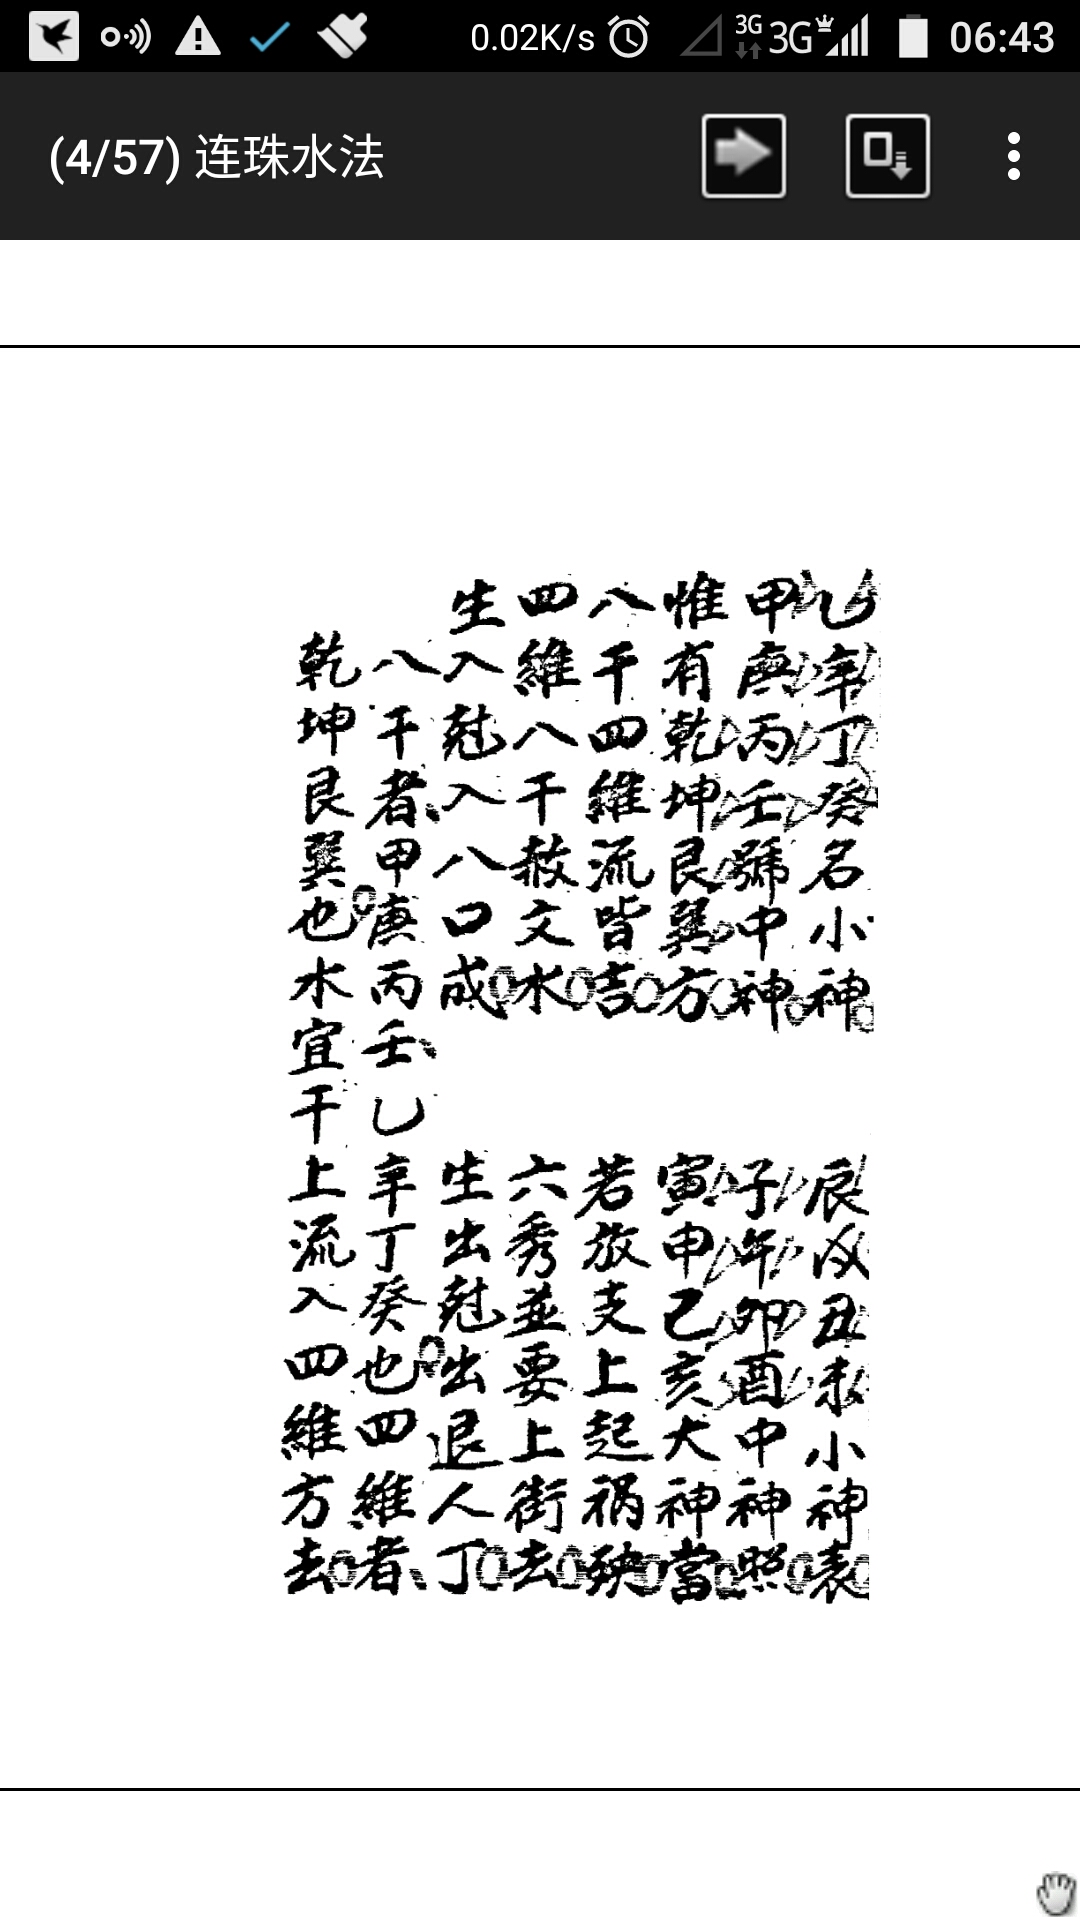 0.02K/s 3G 3G 06:43
(4/57) 连珠水法
乙辛丁癸名小神 辰戌丑未小神表
甲庚丙壬號中神 子午卯酉中神照
惟有乾坤艮巽方 寅申己亥大神當
八干四維流皆吉 若放支上起禍殃
四維八干赦文水 六秀並要上街去
生入尅入八口成 生出尅出退人丁
八干者甲庚丙壬乙辛丁癸也四維者
乾坤艮巽也水宜干上流入四維方去